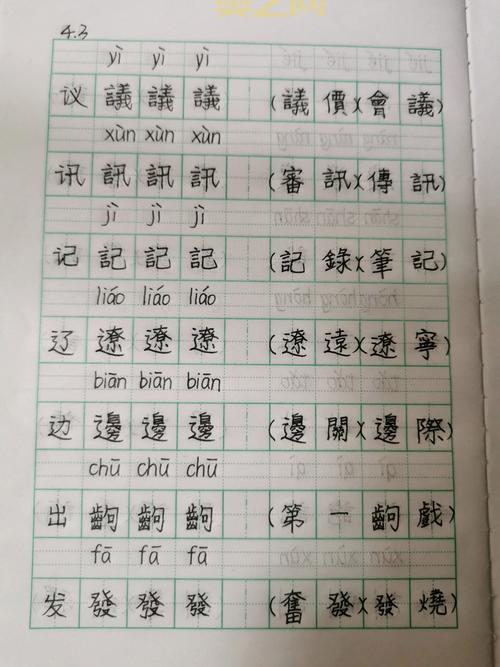 4.3
yì yì yì
议 議 議 議 (議 價)(會 議)
xùn xùn xùn
讯 訊 訊 訊 (審 訊)(傳 訊)
jì jì jì
记 記 記 記 (記 錄)(筆 記)
liáo liáo liáo
辽 遼 遼 遼 (遼 遠)(遼 寧)
biān biān biān
边 邊 邊 邊 (邊 關)(邊 際)
chū chū chū
出 齣 齣 齣 (第 一 齣 戲)
fā fā fā
发 發 發 發 (奮 發)(發 燒)